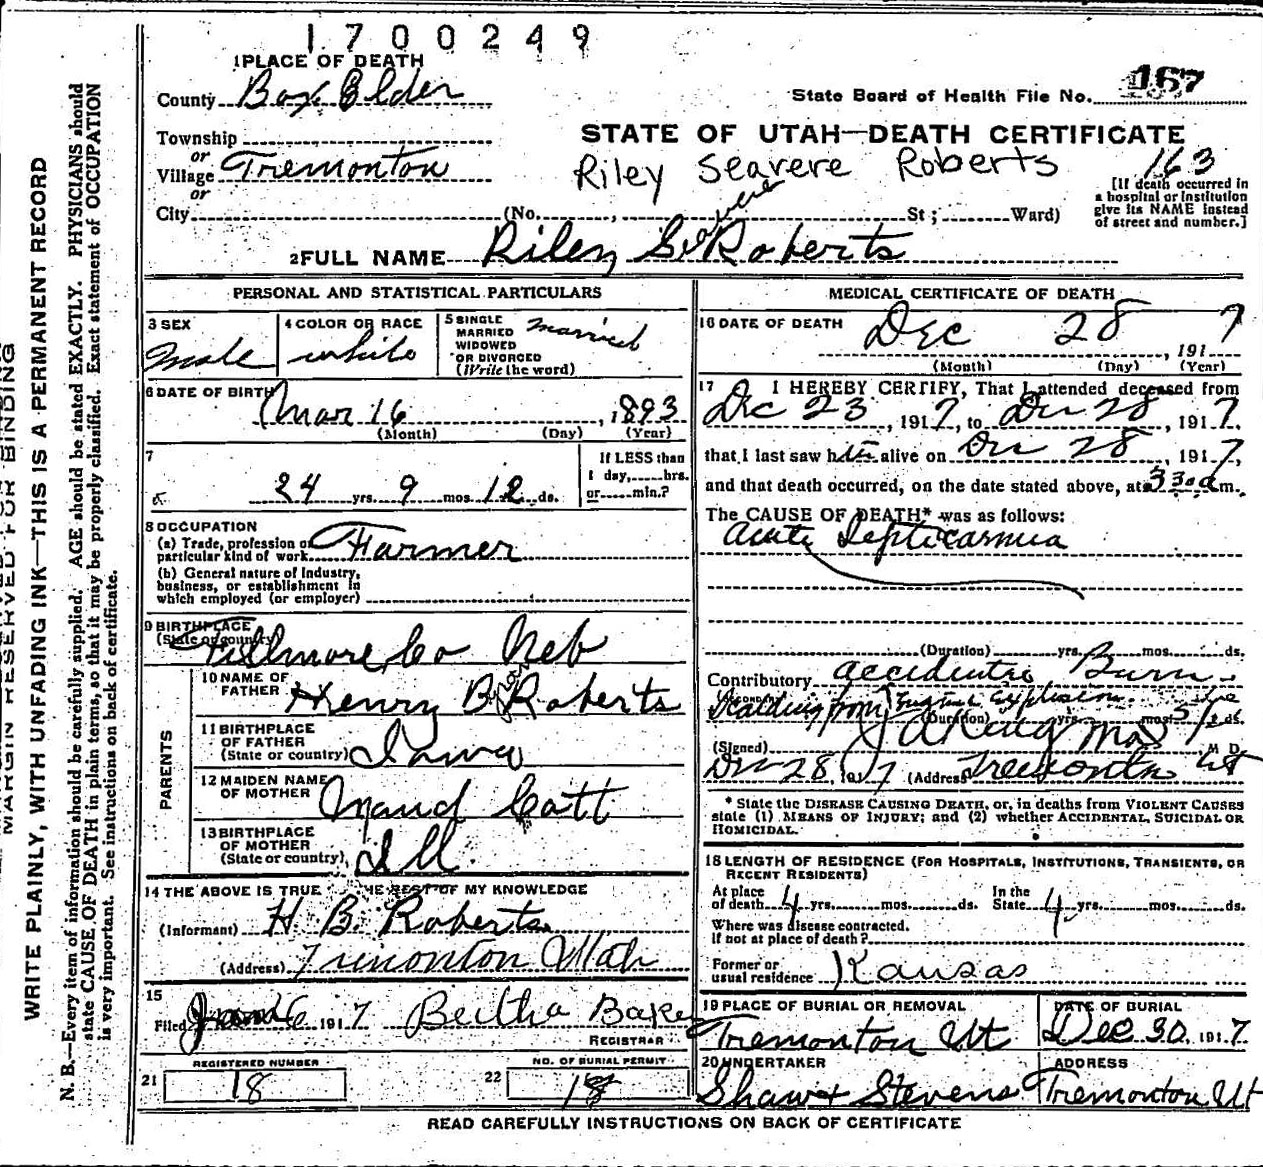 1700249
1 PLACE OF DEATH
County Box Elder
State Board of Health File No. 167
Township
or
Village Tremonton
or
STATE OF UTAH—DEATH CERTIFICATE
Riley Seavere Roberts 163
[If death occurred in
a hospital or institution
give its NAME instead
of street and number.]
City (No. , St; Ward)
2 FULL NAME Riley Seavere Roberts
PERSONAL AND STATISTICAL PARTICULARS
3 SEX
Male
4 COLOR OR RACE
white
5 SINGLE
MARRIED
WIDOWED
OR DIVORCED
(Write the word)
married
6 DATE OF BIRTH
Mar 16, 1893
(Month) (Day) (Year)
7
24 yrs. 9 mos. 12 ds.
If LESS than
1 day, hrs.
or min.?
8 OCCUPATION
(a) Trade, profession or
particular kind of work Farmer
(b) General nature of Industry,
business, or establishment in
which employed (or employer)
9 BIRTHPLACE
(State or country)
Fillmore Co Neb
10 NAME OF
FATHER Henry B Roberts
11 BIRTHPLACE
OF FATHER
(State or country) Iowa
12 MAIDEN NAME
OF MOTHER Maud Catt
13 BIRTHPLACE
OF MOTHER
(State or country) Ill.
PARENTS
14 THE ABOVE IS TRUE THE BEST OF MY KNOWLEDGE
(Informant) H. B. Roberts
(Address) Tremonton Utah
15
Filed 6 1917 Bertha Baker
REGISTRAR
REGISTERED NUMBER
21 18
NO. OF BURIAL PERMIT
22 18
MEDICAL CERTIFICATE OF DEATH
16 DATE OF DEATH
Dec 28, 1917
(Month) (Day) (Year)
17 I HEREBY CERTIFY, That I attended deceased from
Dec 23, 1917, to Dec 28, 1917,
that I last saw him alive on Dec 28, 1917,
and that death occurred, on the date stated above, at 3 30 a m.
The CAUSE OF DEATH* was as follows:
Acute Septicaemia
(Duration) yrs. mos. ds.
Contributory accidental Burn
Scalding from Engine Explosion
(Duration) yrs. mos. 5 ds.
(Signed) M. D.
Dec 28, 1917 (Address) Tremonton Ut
* State the DISEASE CAUSING DEATH, or, in deaths from VIOLENT CAUSES
state (1) MEANS OF INJURY; and (2) whether ACCIDENTAL, SUICIDAL OR
HOMICIDAL.
18 LENGTH OF RESIDENCE (FOR HOSPITALS, INSTITUTIONS, TRANSIENTS, OR
RECENT RESIDENTS)
At place
of death 4 yrs. mos. ds.
In the
State 4 yrs. mos. ds.
Where was disease contracted.
If not at place of death?
Former or
usual residence Kansas
19 PLACE OF BURIAL OR REMOVAL
Tremonton Ut
DATE OF BURIAL
Dec 30, 1917.
20 UNDERTAKER
Shaw & Stevens
ADDRESS
Tremonton, Ut
READ CAREFULLY INSTRUCTIONS ON BACK OF CERTIFICATE
MARGIN RESERVED FOR BINDING
WRITE PLAINLY, WITH UNFADING INK—THIS IS A PERMANENT RECORD
N. B.—Every item of information should be carefully supplied. AGE should be stated EXACTLY. PHYSICIANS should
state CAUSE OF DEATH in plain terms, so that it may be properly classified. Exact statement of OCCUPATION
is very important. See instructions on back of certificate.